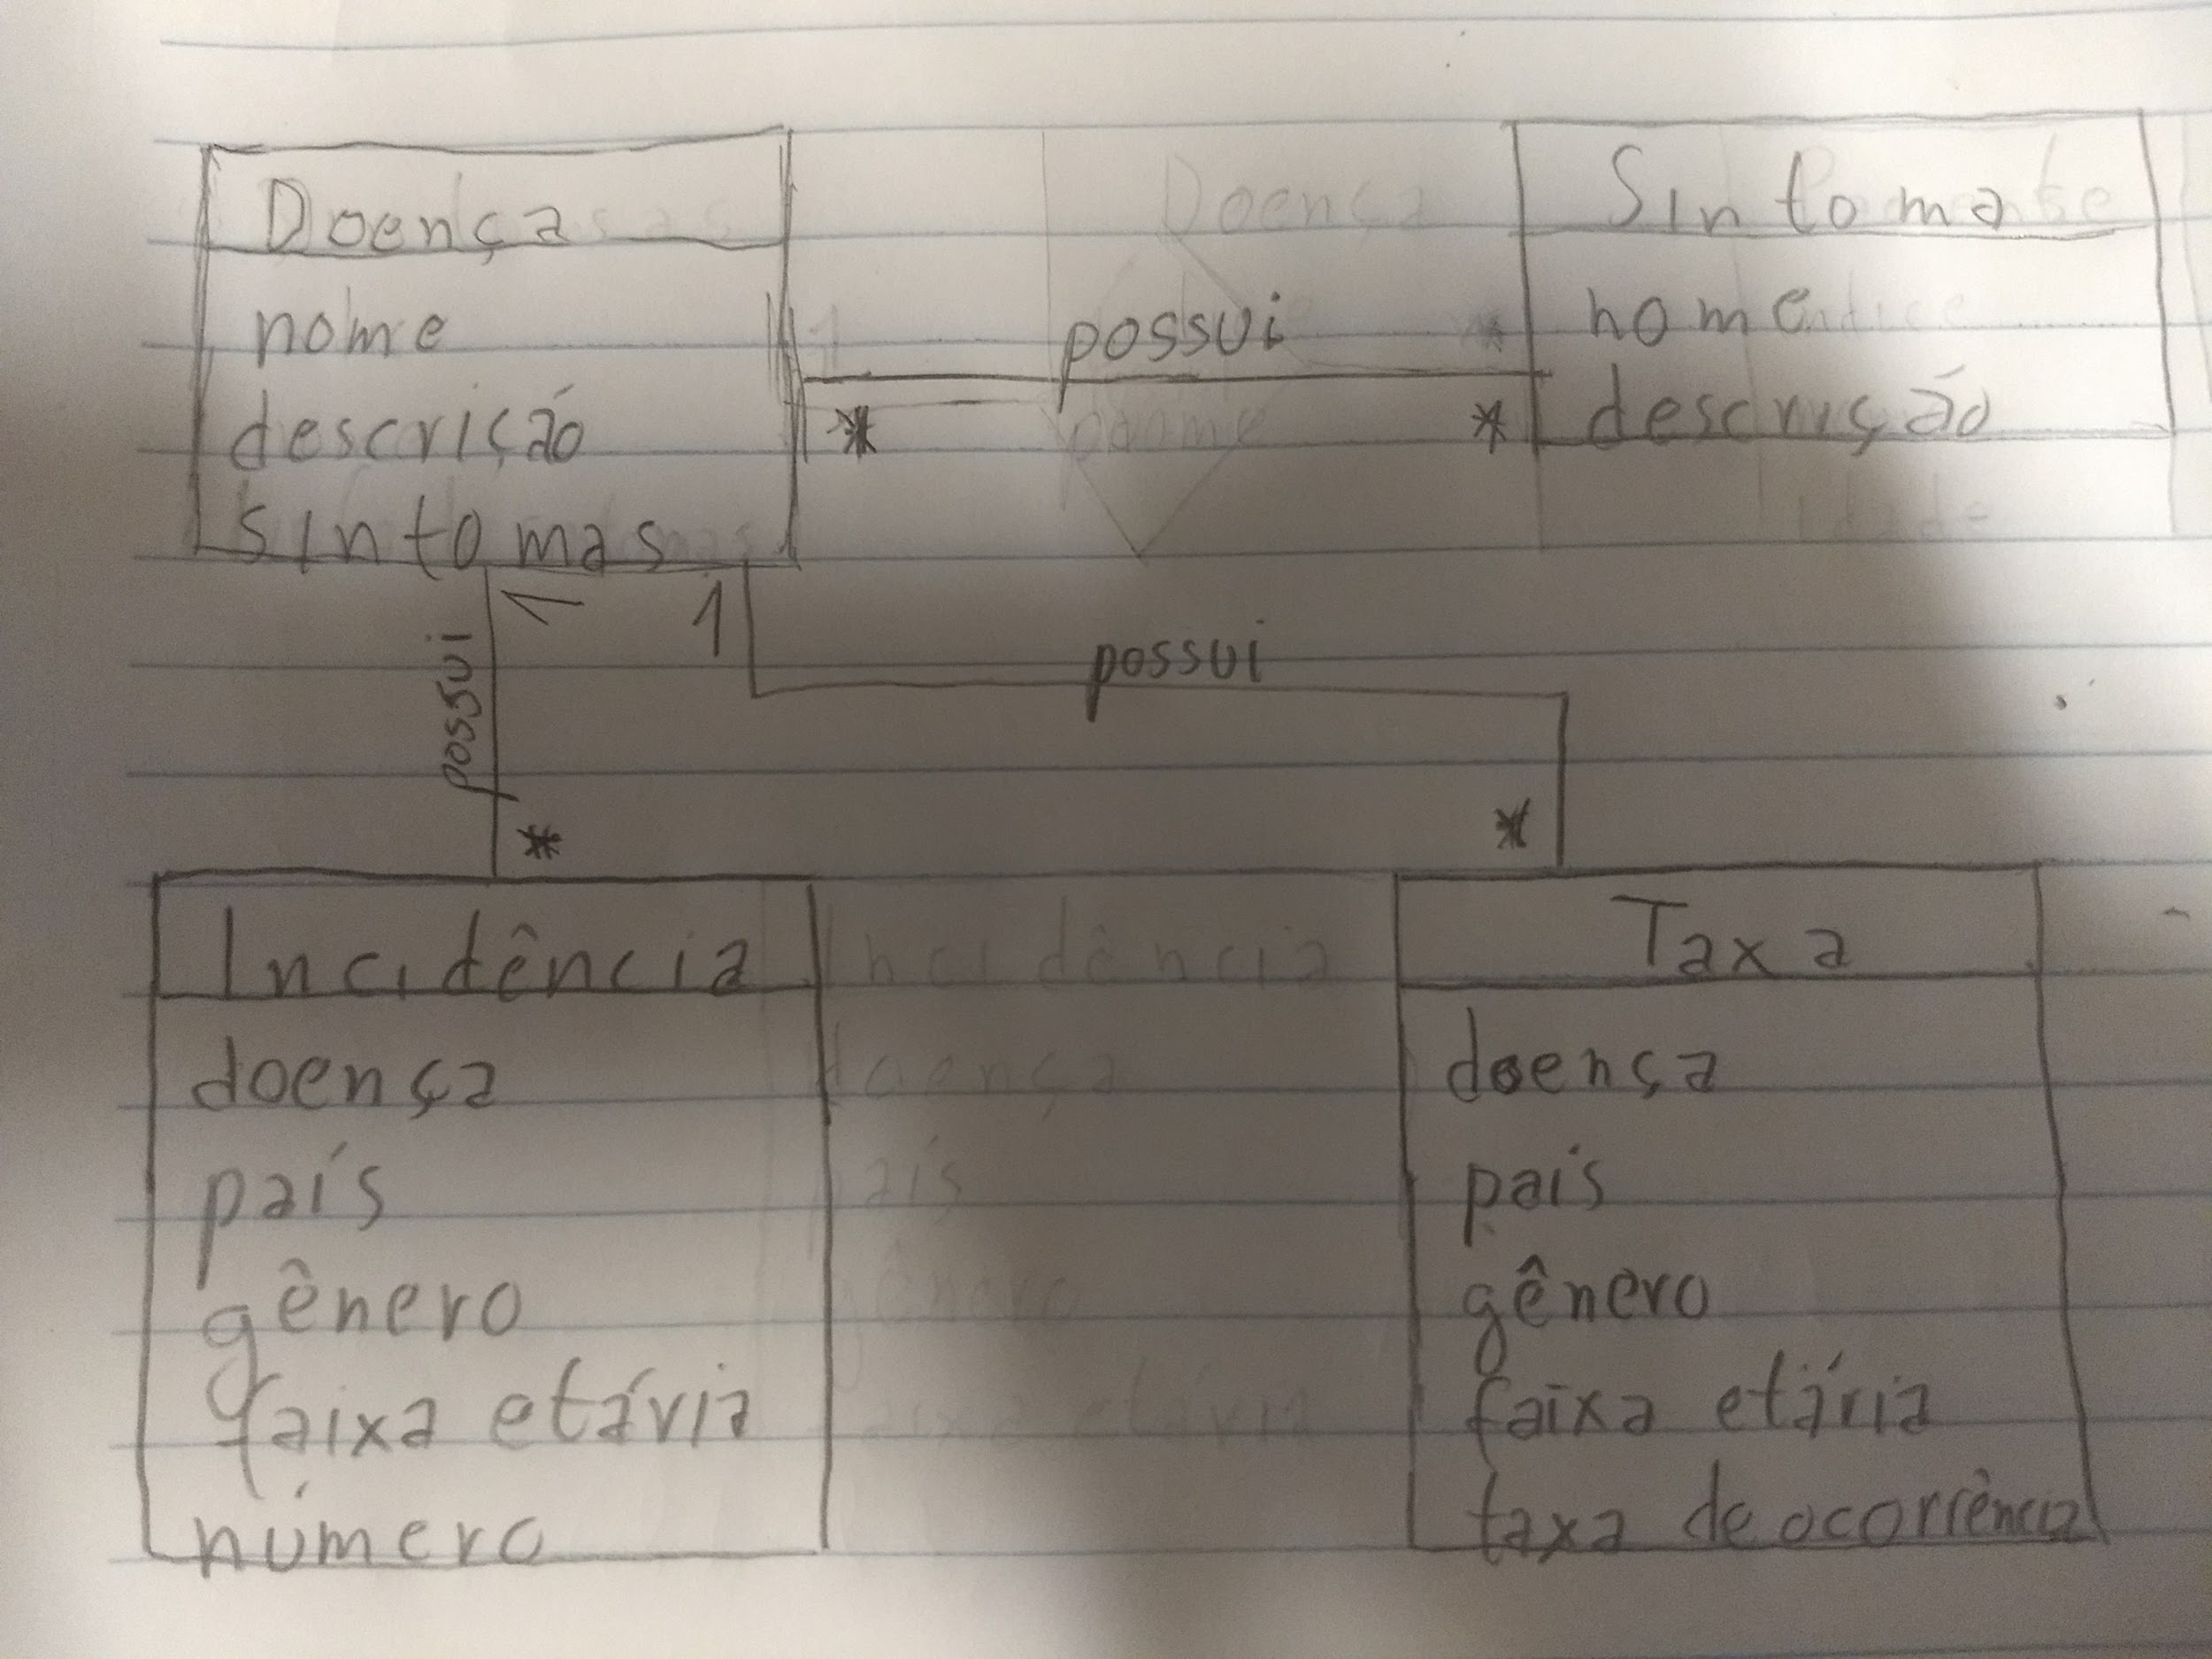 Doença
nome
descrição
sintomas
possui
*
*
Sintoma
nome
descrição
1
1
possui
*
possui
*
Incidência
doença
país
gênero
faixa etária
número
Taxa
doença
país
gênero
faixa etária
taxa de ocorrência